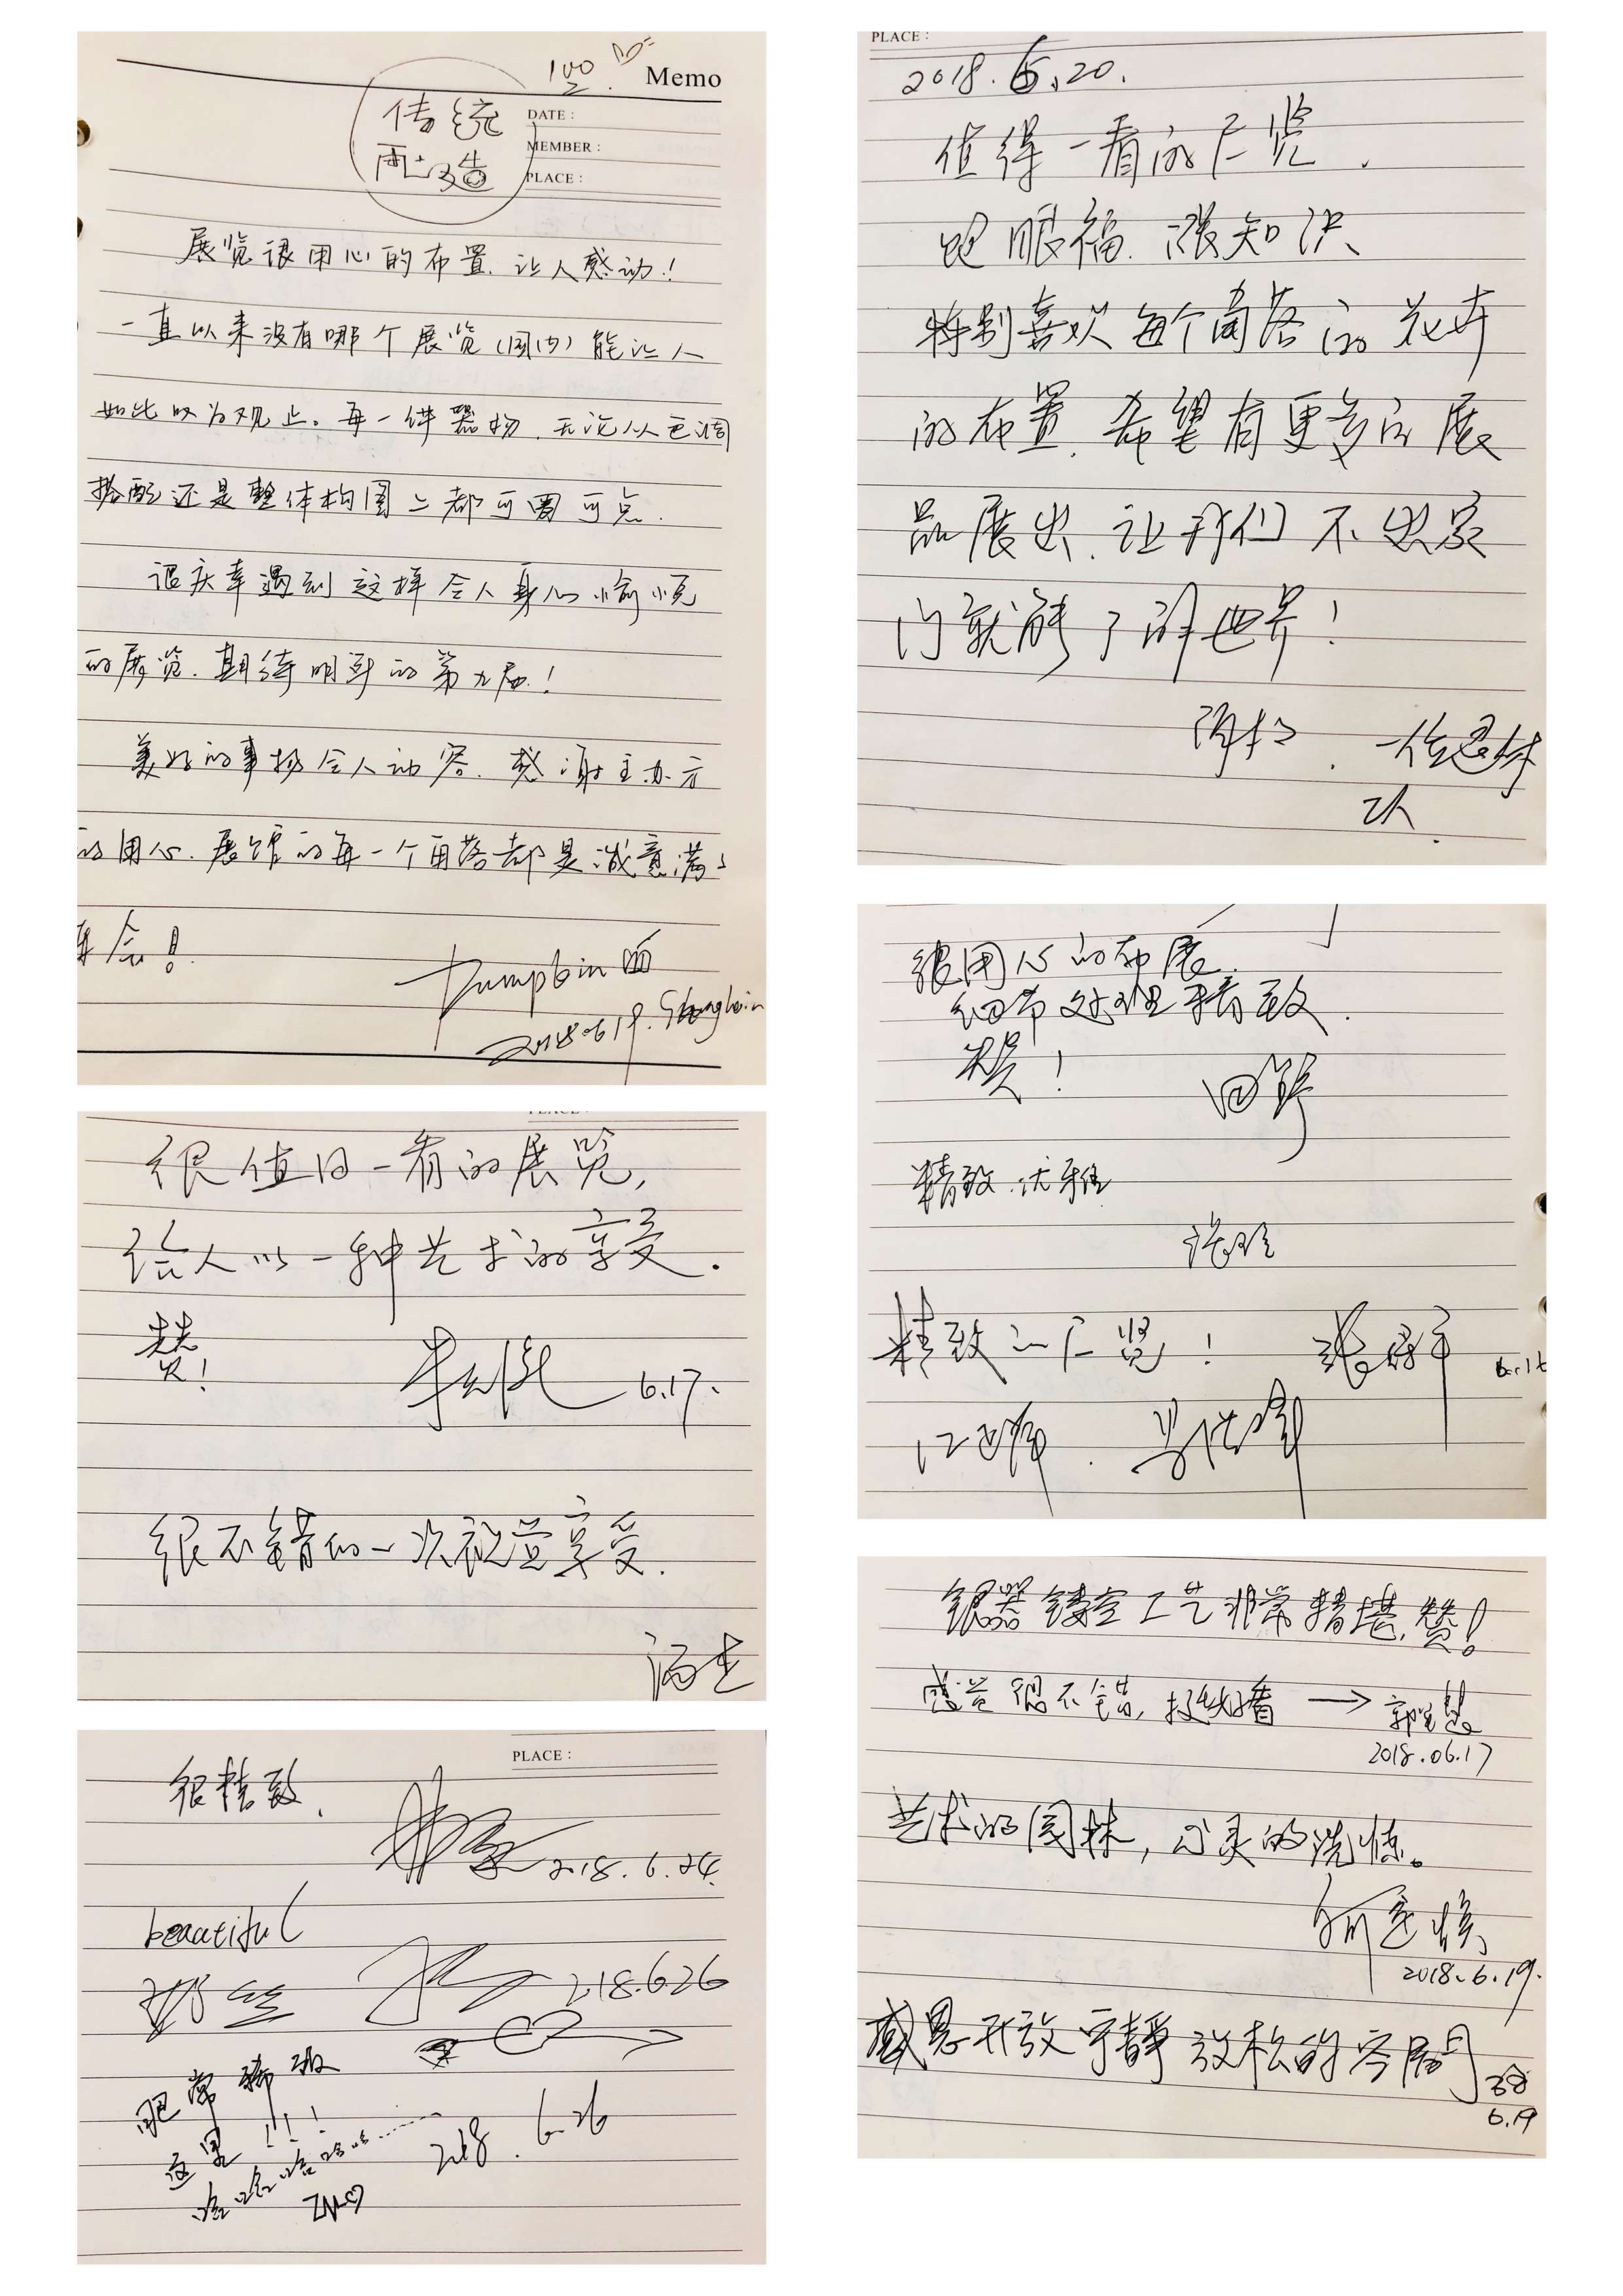 100
Memo
传统
再造
DATE:
MEMBER:
PLACE:
展览很用心的布置、让人感动!
一直以来没有哪个展览(国内)能让人
如此叹为观止。每一件器物、无论从色调
搭配还是整体构图上都可圈可点.
很庆幸遇到这样令人身心愉悦
的展览.期待明年的第九届!
美好的事物令人动容.感谢主办方
的用心.展馆的每一个角落都是诚意满满
Pumpkin
2018.06.19. Shanghai
很值得一看的展览,
给人以一种艺术的享受.
赞!
6.17.
很不错的一次视觉享受.
PLACE:
很精致.
2018.6.24.
beautiful
2018.6.26
这里!!!
哈哈哈哈哈......
2018.6.26
PLACE:
2018.6.20.
值得一看的展览.
饱眼福.涨知识、
特别喜欢每个角落的花卉
的布置.希望有更多的展
品展出.让我们不出家
门就能了解世界!
很用心的布展.
细节处理精致.
赞!
精致.优雅
精致的展览!
6.16
银器镂空工艺非常精堪,赞!
感觉很不错,挺好看 →
2018.06.17
艺术的园林,心灵的洗涤。
2018.6.19.
感恩开放宁静放松的空间
6.19